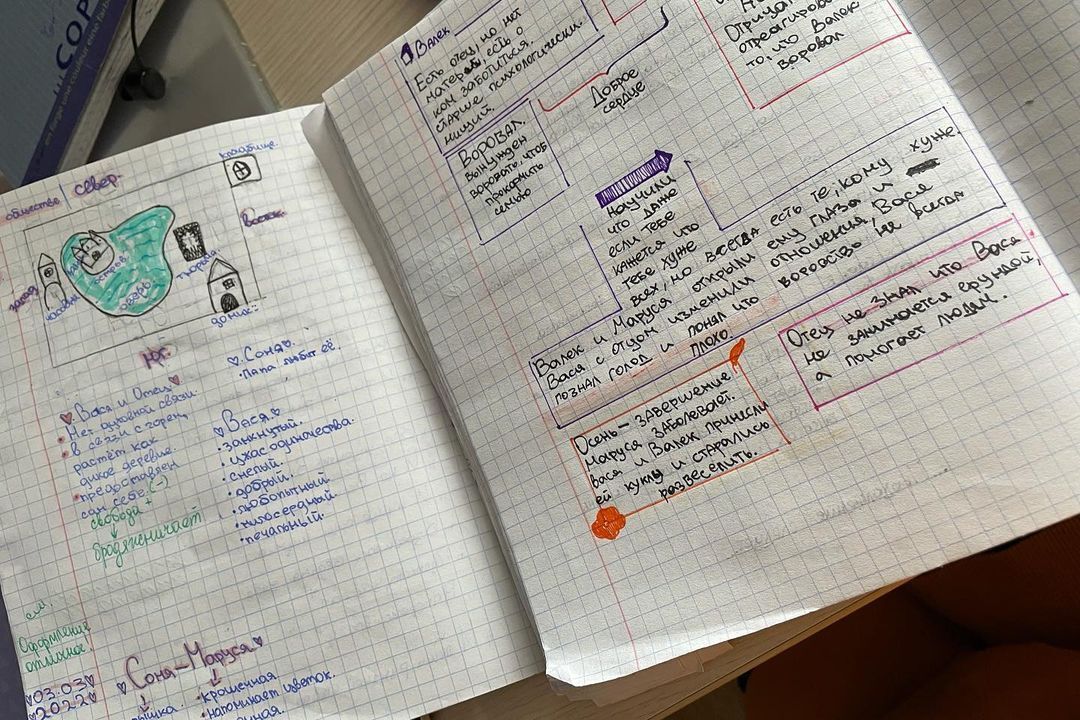 COP
кладбище.
общество
север.
Восток.
запад
часовня
замок
остров
озеро
город
домик
Юг.
Соня.
• Папа любит её.
Вася и Отец
• Нет духовной связи
• В связи с горем,
растёт как
дикое деревце.
• предоставлен
сам себе. (-)
свобода +
бродяжничает
Вася.
• замкнутый.
• ужас одиночества.
• смелый.
• добрый.
• любопытный.
• милосердный.
• печальный.
см.
Оформление
отличное!
03.03
2022
Соня–Маруся
• крошечная
• напоминает цветок.
Валек
Есть отец, но нет
матери, есть о
ком заботиться.
старше психологически.
нищий.
Воровал.
Вынужден
воровать, чтоб
прокормить
семью
Доброе
сердце
Отрицат
отреагировал
то, что Валек
воровал
Научили
что даже
если тебе
кажется что
тебе хуже
всех, но всегда есть те, кому хуже.
Валек и Маруся открыли ему глаза и
Вася с отцом изменили отношения, Вася
познал голод и понял что воровство не всегда
плохо.
Отец не знал что Вася
не занимается ерундой,
а помогает людям.
Осень – завершение
Маруся заболевает.
Вася и Валек принесли
ей куклу и старались
развеселить.